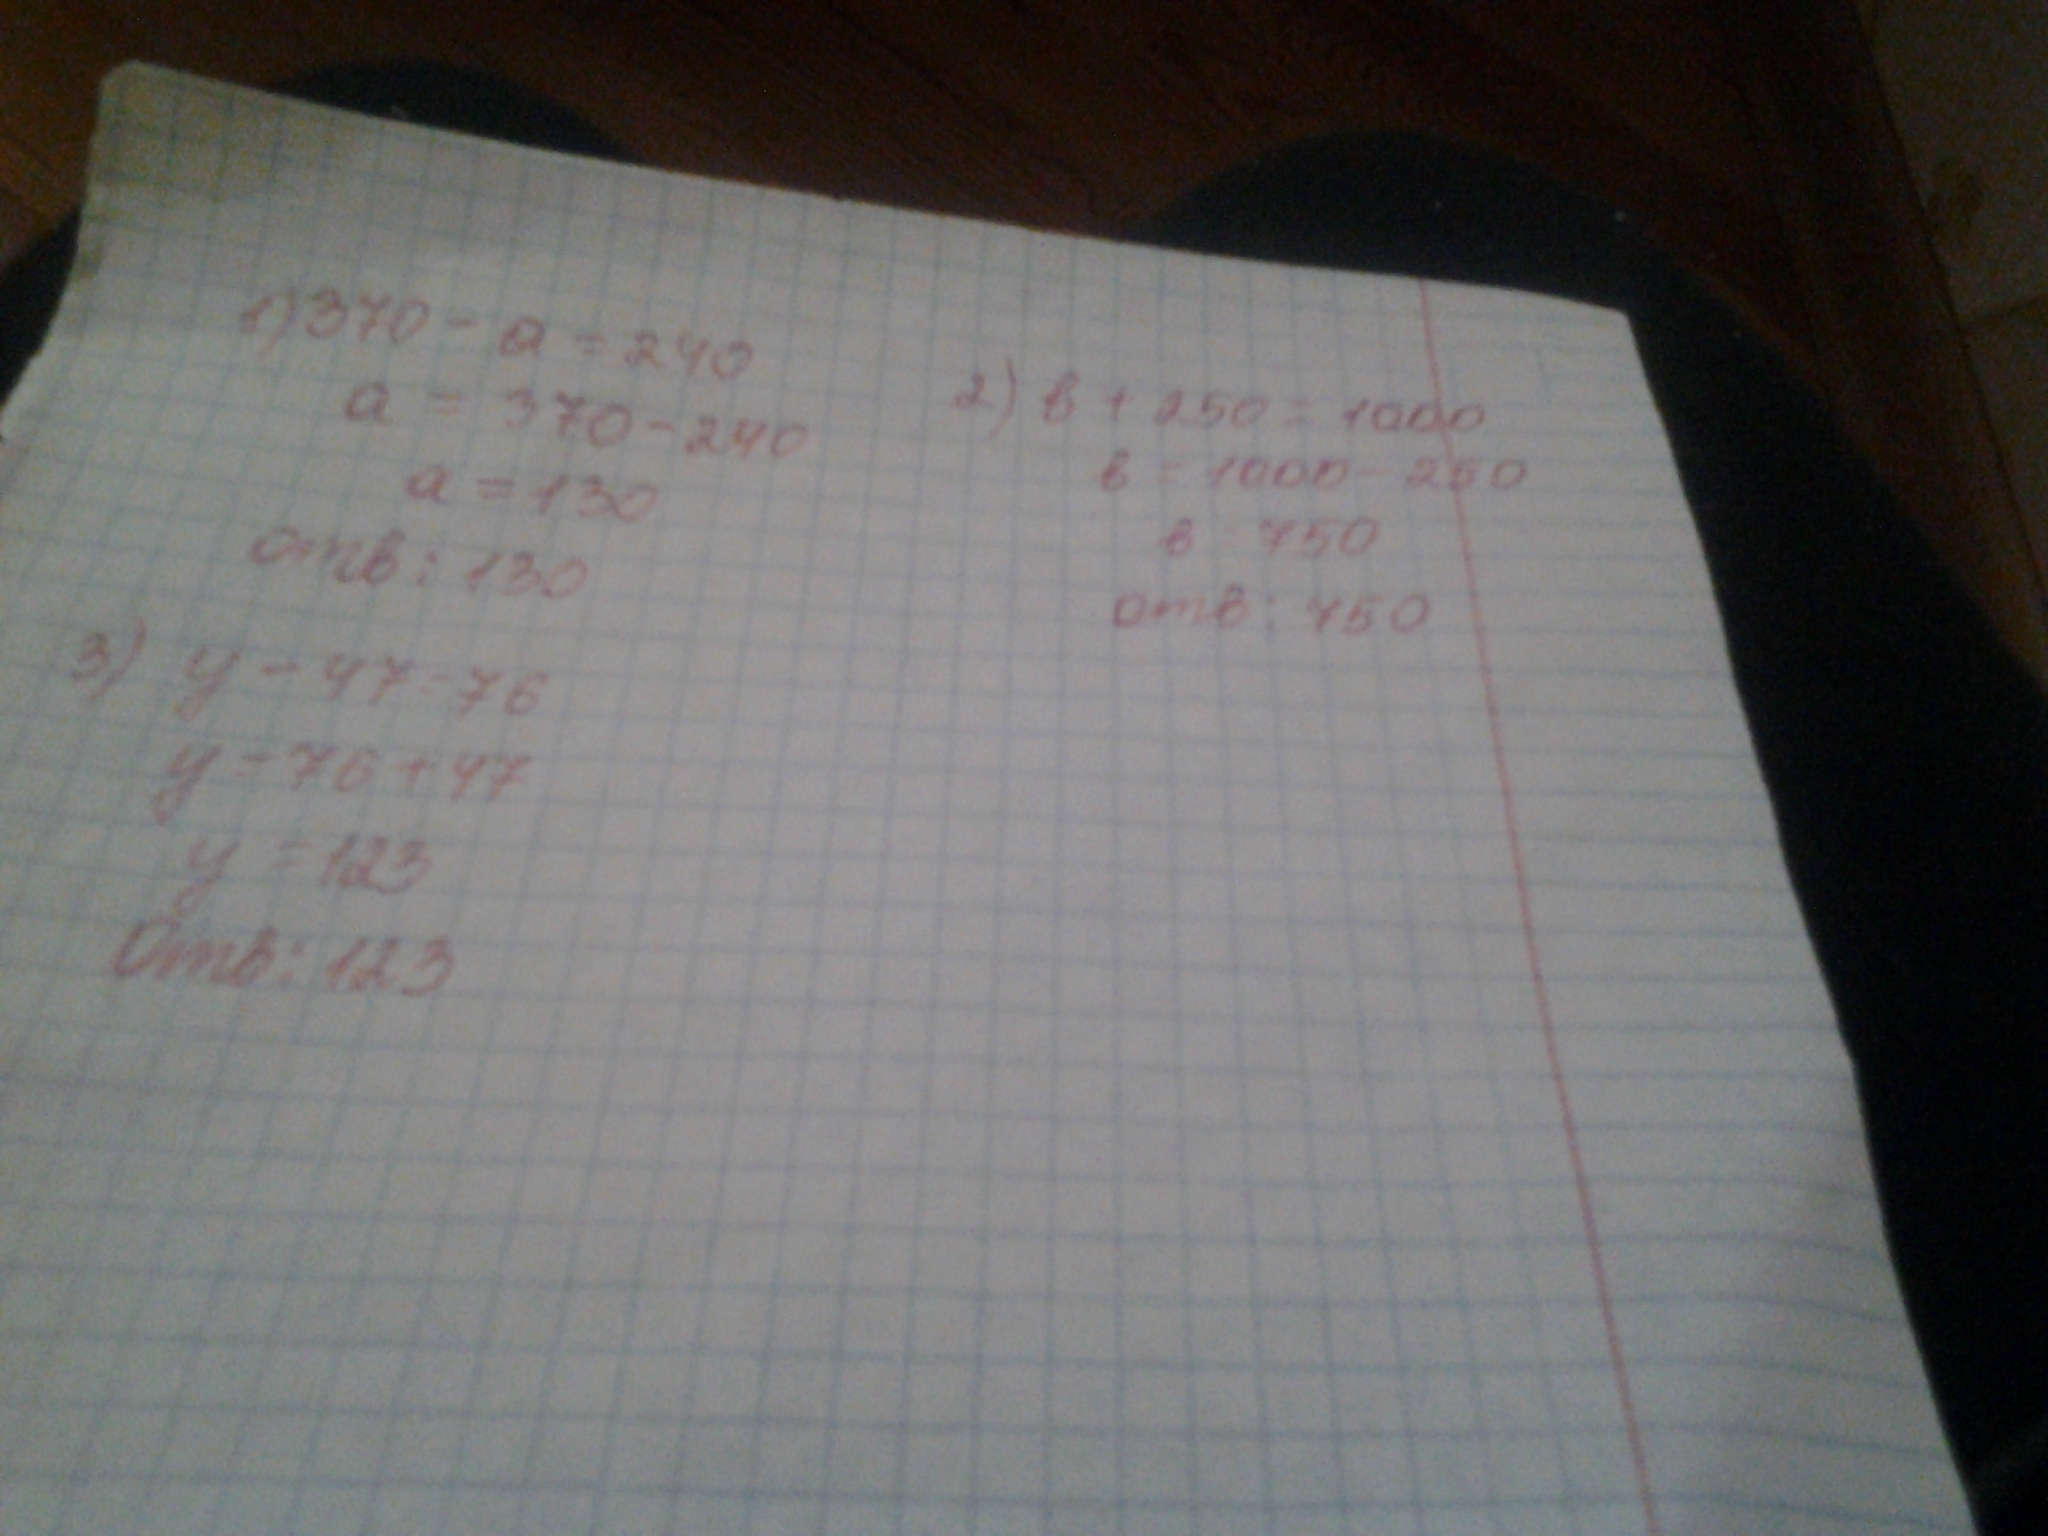 1) 370 - a = 240
a = 370 - 240
a = 130
отв: 130
2) в + 250 = 1000
в = 1000 - 250
в = 750
отв: 750
3) y - 47 = 76
y = 76 + 47
y = 123
Отв: 123